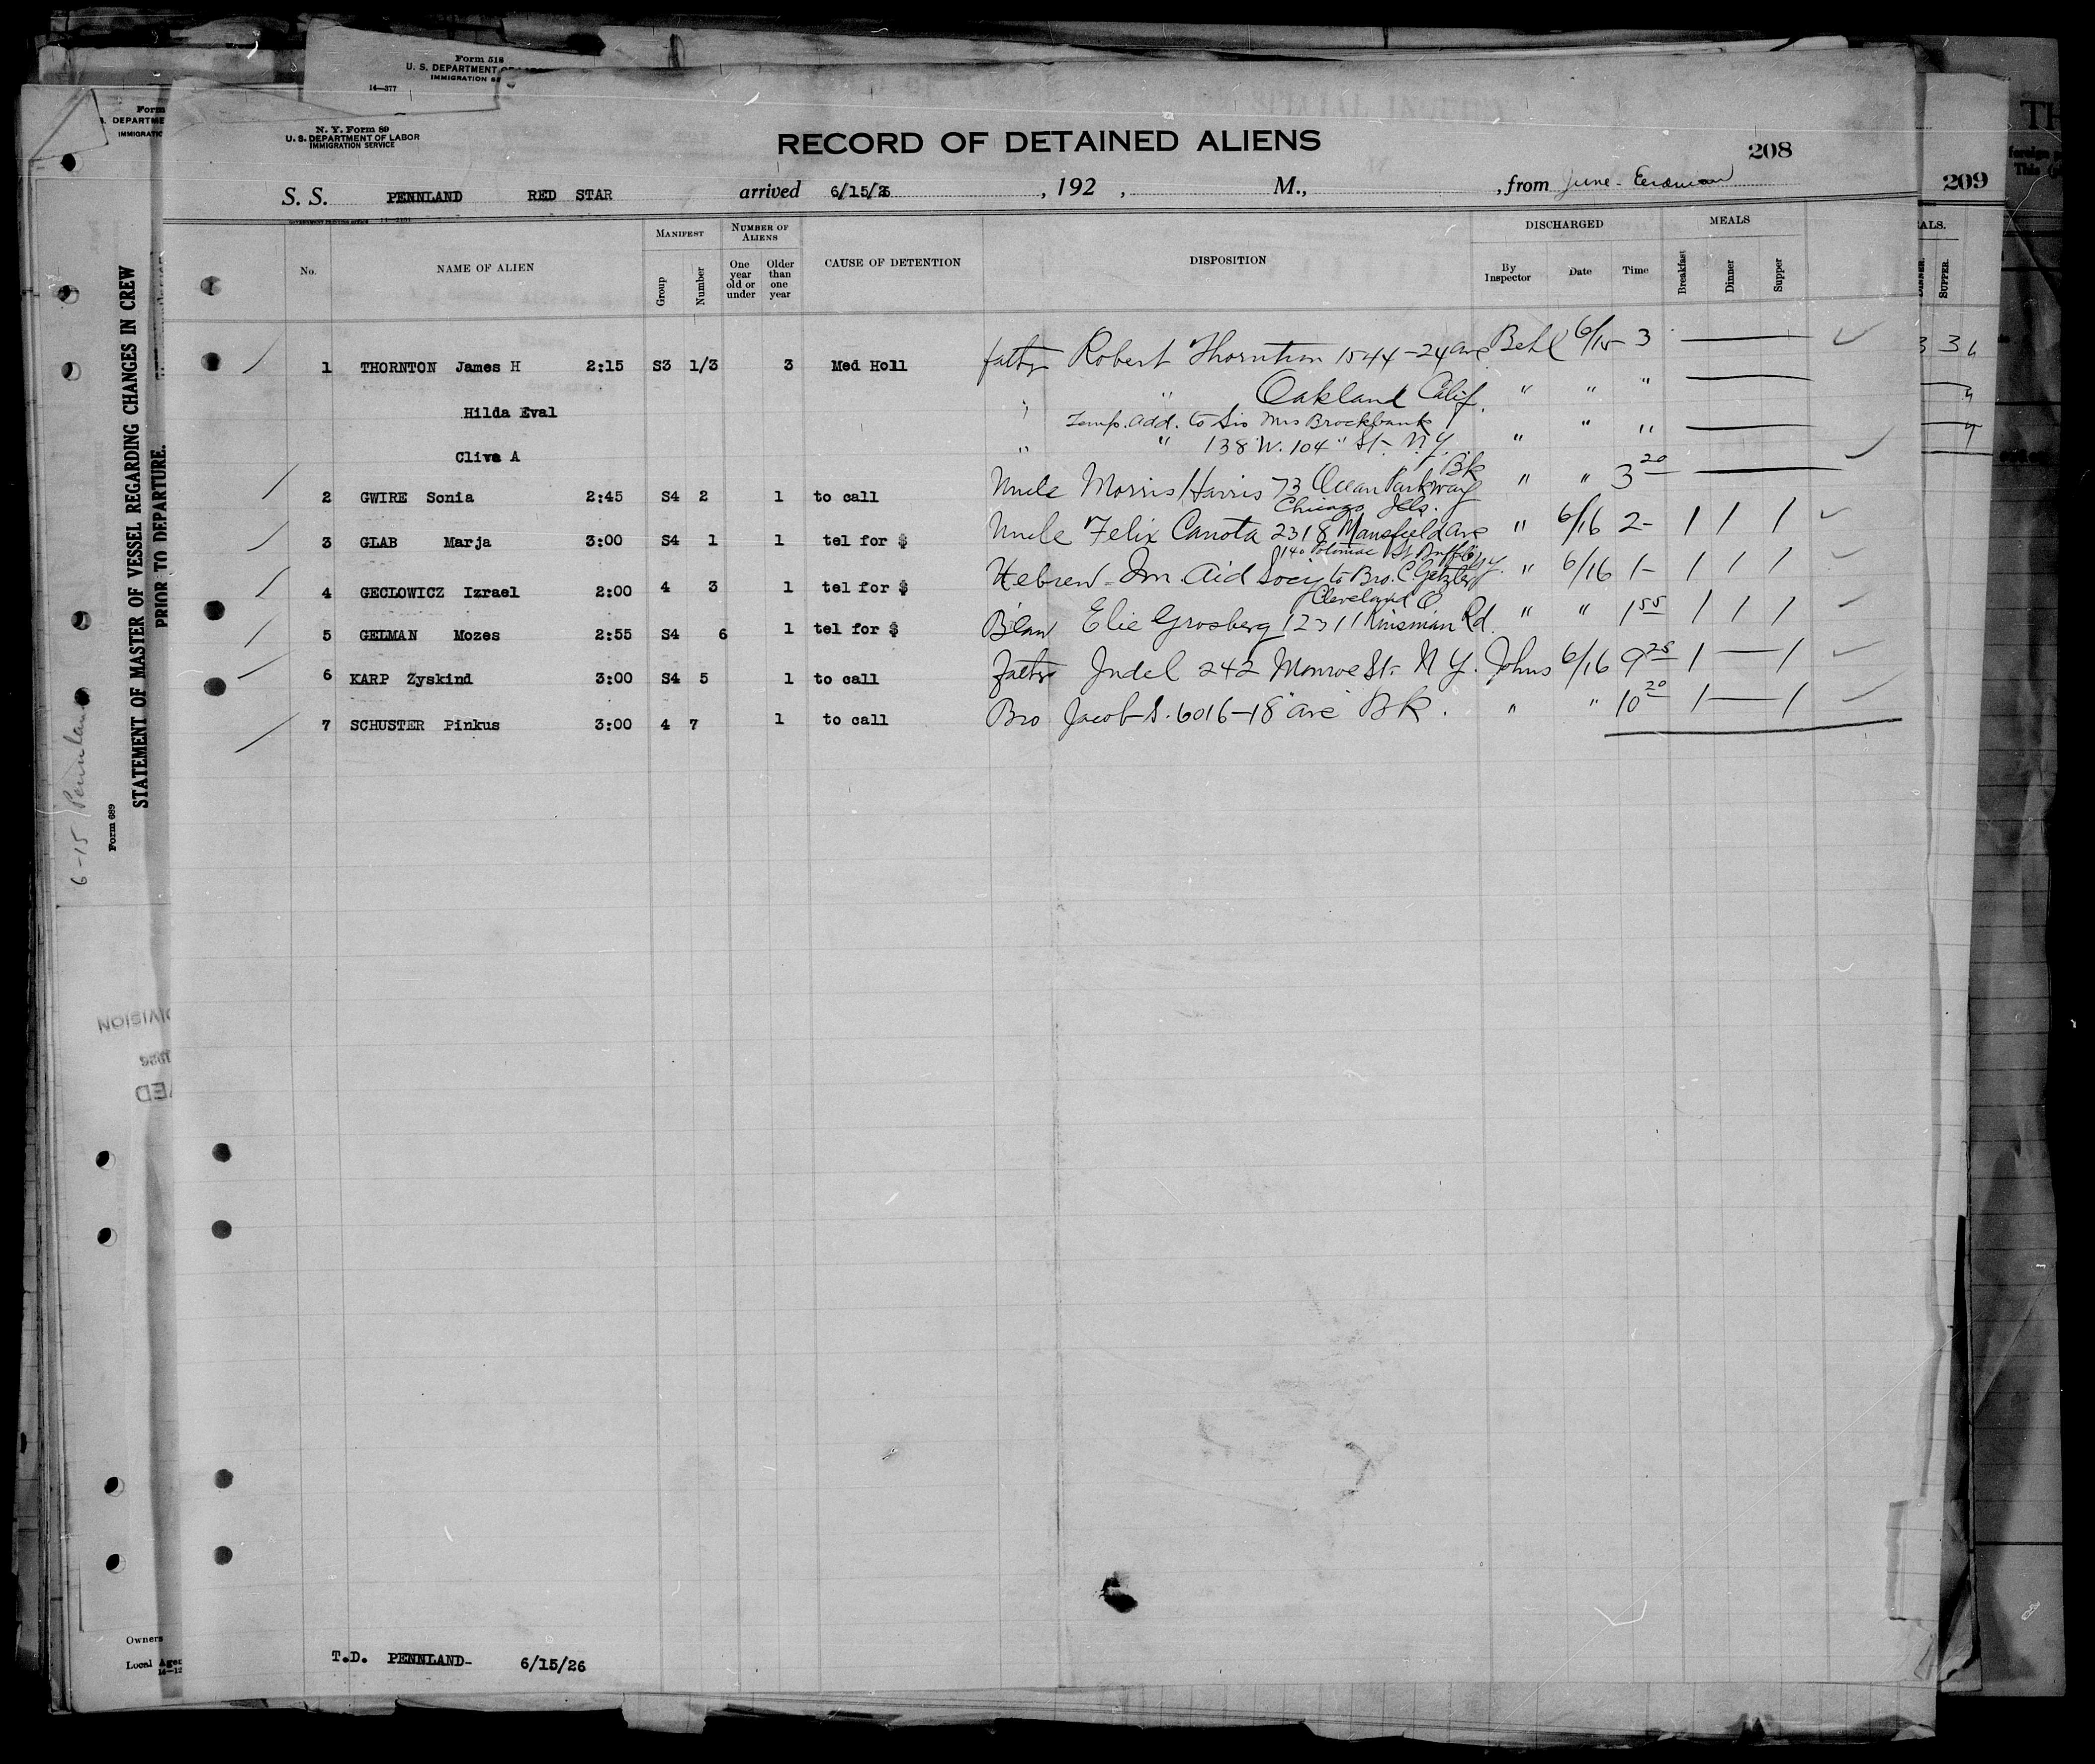 Form 518
U. S. DEPARTMENT OF LABOR
IMMIGRATION SE
14—377
Form
S. DEPARTME
IMMIGRATIC
N. Y. Form 89
U. S. DEPARTMENT OF LABOR
IMMIGRATION SERVICE
RECORD OF DETAINED ALIENS
208
S. S. PENNLAND RED STAR arrived 6/15/26 , 192 , M., , from June -
209
TH
No. NAME OF ALIEN MANIFEST Group Number NUMBER OF ALIENS One year old or under Older than one year CAUSE OF DETENTION DISPOSITION DISCHARGED By Inspector Date Time MEALS Breakfast Dinner Supper
ALS.
DINNER. SUPPER.
1 THORNTON James H 2:15 S3 1/3 3 Med Holl father Robert Thornton 1544-24 ave Behl 6/15 3 —
Hilda Eval " " Oakland Calif. " " " —
Temp. add. to Sis Mrs Brockbank
Cliva A " " 138 W. 104" St- N.Y. " " " —
2 GWIRE Sonia 2:45 S4 2 1 to call Uncle Morris Harris 73 Ocean Parkway Bk " " 3 20 —
3 GLAB Marja 3:00 S4 1 1 tel for $ Uncle Felix Canota 2318 Mansfield ave Chicago Ills. " 6/16 2- 1 1 1
4 GECLOWICZ Izrael 2:00 4 3 1 tel for $ Hebrew Im Aid Socy to Bro. C. Getzler 140 Potomac St Buffalo N.Y. " 6/16 1- 1 1 1
5 GELMAN Mozes 2:55 S4 6 1 tel for $ Blaw Elie Grosberg 12311 Kinsman Rd. Cleveland O " " 1 55 1 1 1
6 KARP Zyskind 3:00 S4 5 1 to call father Judel 242 Monroe St- N Y. Johns 6/16 9 25 1 — 1
7 SCHUSTER Pinkus 3:00 4 7 1 to call Bro Jacob S. 6016-18" ave Bk. " " 10 20 1 — 1
T.D. PENNLAND- 6/15/26
STATEMENT OF MASTER OF VESSEL REGARDING CHANGES IN CREW
PRIOR TO DEPARTURE.
Form 689
6-15 Pennland
Owners
Local Agen
14—12